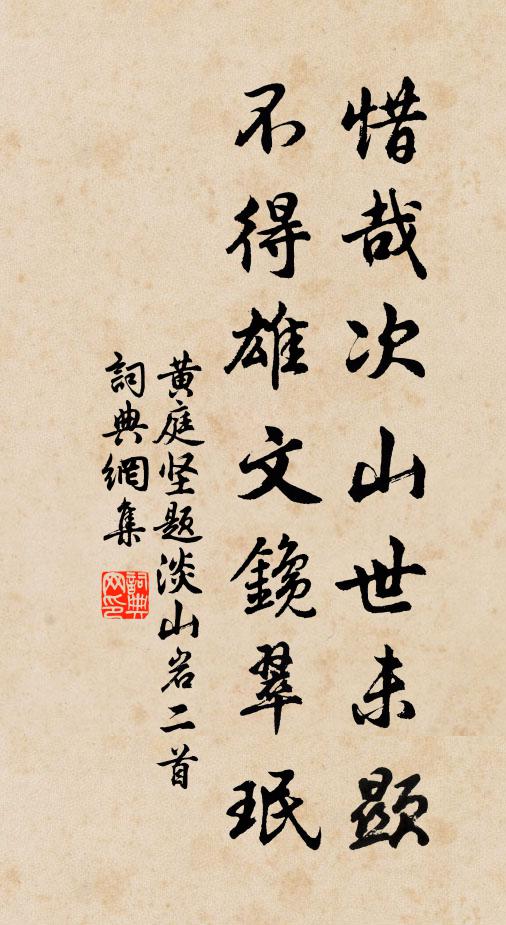 惜哉次山世未顯
不得雄文鑱翠珉
黄庭坚题淡山岩二首
詞典網集
詞典網印